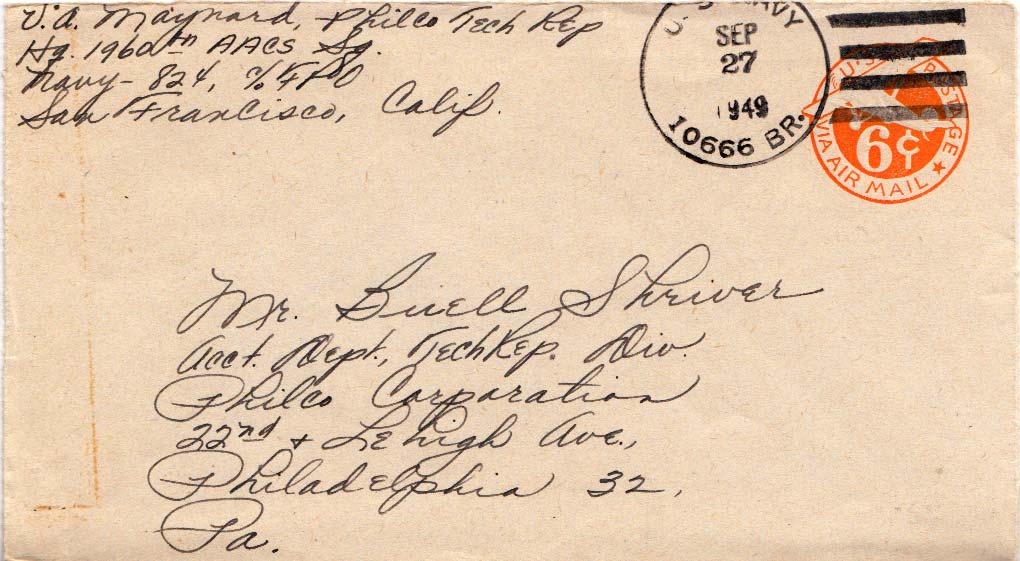 V. A. Maynard, Philco Tech Rep
Hq. 1960th AACS Sq.
Navy - 824, c/o FPO
San Francisco, Calif.
U.S. NAVY
SEP
27
1949
10666 BR.
U.S. POSTAGE
6¢
VIA AIR MAIL
Mr. Buell Shriver
Acct. Dept., Tech Rep. Div.
Philco Corporation
22nd + Lehigh Ave.,
Philadelphia 32,
Pa.